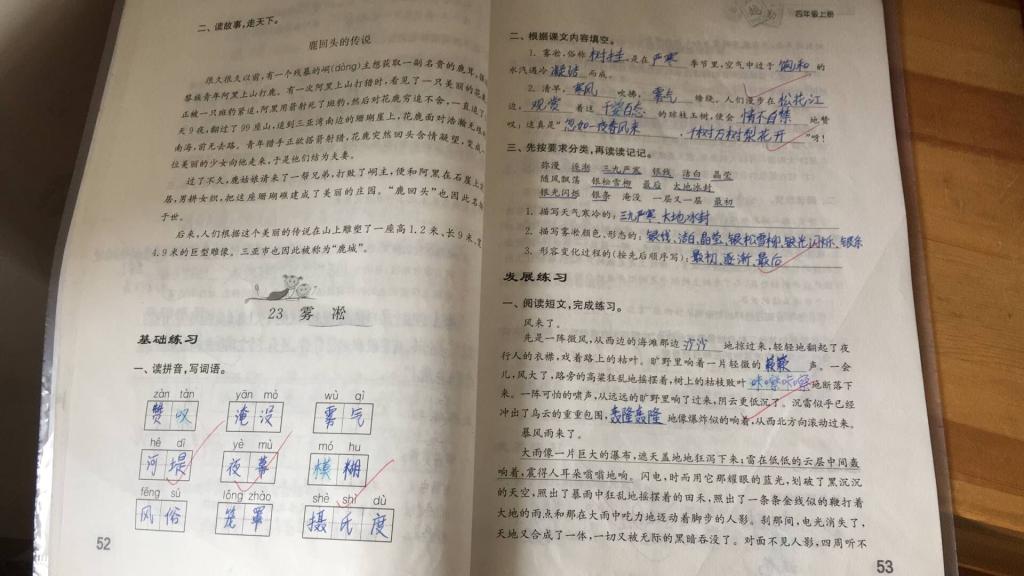 二、读故事,走天下。
鹿回头的传说
很久很久以前,有一个残暴的峒(dòng)主想获取一副名贵的鹿茸,
黎族青年阿黑上山打鹿。有一次阿黑上山打猎时,看见了一只美丽的花
正被一只斑豹紧追,阿黑用箭射死了斑豹,然后对花鹿穷追不舍,一直追了
天9夜,翻过了99座山,追到三亚湾南边的珊瑚崖上,花鹿面对浩瀚无
南海,前无去路。青年猎手正欲搭箭射猎,花鹿突然回头含情凝望,变成
位美丽的少女向他走来,于是他们结为夫妻。
过了不久,鹿姑娘请来了一帮兄弟,打败了峒主,便和阿黑在石崖上
居,男耕女织,把这座珊瑚崖建成了美丽的庄园。“鹿回头”也因此
于世。
后来,人们根据这个美丽的传说在山上雕塑了一座高1.2米、长9米、
4.9米的巨型雕像。三亚市也因此被称为“鹿城”。
23 雾凇
基础练习
一、读拼音,写词语。
zàn tàn yān mò wù qì
赞叹 淹没 雾气
hé dī yè mù mó hu
河堤 夜幕 模糊
fēng sú lǒng zhào shè shì dù
风俗 笼罩 摄氏度
52
四年级上册
二、根据课文内容填空。
1. 雾凇,俗称树挂,是在严寒季节里,空气中过于饱和的
水汽遇冷凝结而成。
2. 清早,寒风吹拂,雾气缭绕,人们漫步在松花江
边,观赏着这千姿百态的琼枝玉树,便会情不自禁地赞
叹:这真是“忽如一夜春风来,千树万树梨花开”呀!
三、先按要求分类,再读读记记。
弥漫 逐渐 三九严寒 银线 洁白 晶莹
随风飘荡 银松雪柳 最后 大地冰封
银光闪烁 银条 淹没 一层又一层 最初
1. 描写天气寒冷的:三九严寒、大地冰封
2. 描写雾凇颜色、形态的:银线、洁白、晶莹、银松雪柳、银光闪烁、银条
3. 形容变化过程的(按先后顺序写):最初、逐渐、最后
发展练习
一、阅读短文,完成练习。
风来了。
先是一阵微风,从西边的海滩那边沙沙地掠过来,轻轻地翻起了夜
行人的衣襟,戏着路上的枯叶。旷野里响着一片轻微的簌簌声。一会
儿,风大了,路旁的高粱狂乱地摇摆着,树上的枯枝败叶咔嚓咔嚓地断落下
来。一阵可怕的啸声,从远远的旷野里响了过来,阴云更低沉了。沉雷似乎已经
冲出了乌云的重重包围,轰隆轰隆地像爆炸似的响着,从西北方向滚动过来。
暴风雨来了。
大雨像一片巨大的瀑布,遮天盖地地狂泻下来;雷在低低的云层中间轰
响着,震得人耳朵嗡嗡地响。闪电,时而用它那耀眼的蓝光,划破了黑沉沉
的天空,照出了暴雨中狂乱地摇摆着的田禾,照出了一条条金线似的鞭打着
大地的雨点和那在大雨中吃力地迈动着脚步的人影。刹那间,电光消失了,
天地又合成了一体,一切又被无际的黑暗吞没了。对面不见人影,四周听不
53